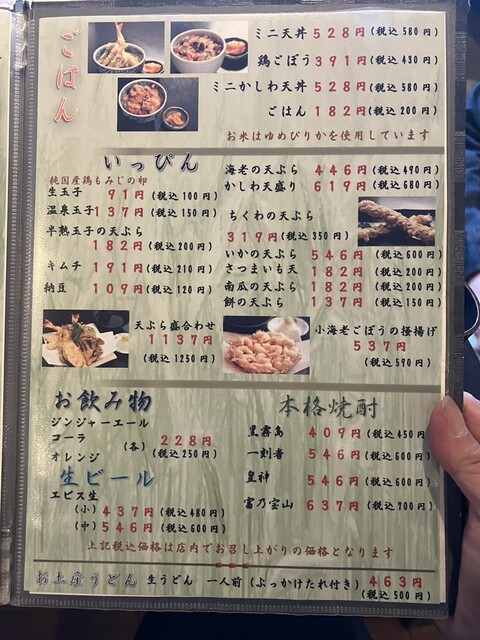 ごはん
ミニ天丼 528円 (税込 580円)
鶏ごぼう 391円 (税込 430円)
ミニかしわ天丼 528円 (税込 580円)
ごはん 182円 (税込 200円)
お米はゆめぴりかを使用しています
いっぴん
純国産鶏もみじの卵
生玉子 91円 (税込 100円)
温泉玉子 137円 (税込 150円)
半熟玉子の天ぷら
182円 (税込 200円)
キムチ 191円 (税込 210円)
納豆 109円 (税込 120円)
天ぷら盛合わせ
1137円
(税込 1250円)
海老の天ぷら 446円 (税込 490円)
かしわ天盛り 619円 (税込 680円)
ちくわの天ぷら
319円 (税込 350円)
いかの天ぷら 546円 (税込 600円)
さつまいも天 182円 (税込 200円)
南瓜の天ぷら 182円 (税込 200円)
餅の天ぷら 137円 (税込 150円)
小海老ごぼうの掻揚げ
537円
(税込 590円)
お飲み物
ジンジャーエール
コーラ
オレンジ
(各) 228円
(税込 250円)
生ビール
エビス生
(小) 437円 (税込 480円)
(中) 546円 (税込 600円)
本格焼酎
黒霧島 409円 (税込 450円
一刻者 546円 (税込 600円)
皇神 546円 (税込 600円)
富乃宝山 637円 (税込 700円)
上記税込価格は店内でお召し上がりの価格となります
お土産うどん 生うどん 一人前 (ぶっかけたれ付き) 463円
(税込 500円)